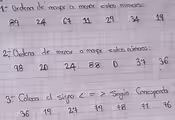 1- Ordena de mayor a menor estos números:
89 24 67 11 29 34 19
2- Ordena de menor a mayor estos números:
98 20 24 88 0 37 36
3- Coloca el signo < = > Según Corresponda
36 19 27 19 18 71 76